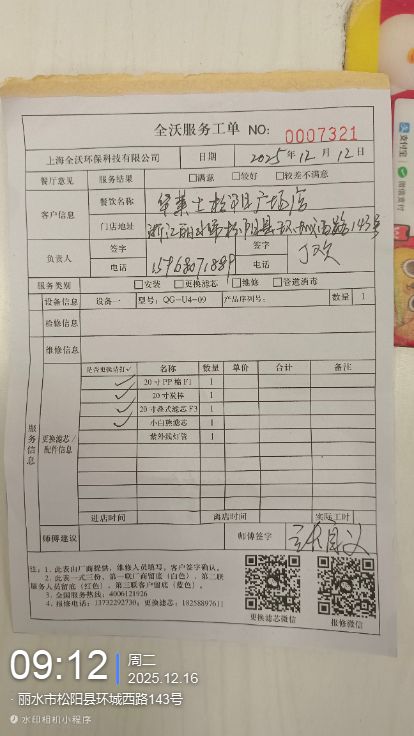 全沃服务工单 NO: 0007321
上海全沃环保科技有限公司 日期 2025年12月12日
餐厅意见 服务结果 □满意 □较好 □较差不满意
客户信息 餐饮名称 华莱士松阳县广场店
门店地址 浙江丽水市松阳县环城西路143号
负责人 签字 签字
电话 15968071889 电话
服务类别 □安装 □更换滤芯 □维修 □管道消毒
设备信息 设备一 型号: QG-U4-09 产品序列号: 数量 1
检修信息
维修信息
服务信息
更换滤芯/配件信息
是否更换请打✓ 名称 数量 单价 合计 备注
✓ 20寸PP棉F1 1
✓ 20寸炭棒 1
✓ 20寸叠式滤芯F3 1
✓ 小白熊滤芯 1
紫外线灯管 1
进店时间 离店时间 实际工时
师傅建议 师傅签字
注: 1. 此表由厂商提供, 维修人员填写, 客户签字确认。
2. 此表一式三份, 第一联厂商留底(白色), 第二联
服务人员留底(红色), 第三联客户留底(蓝色)。
3. 全国服务热线: 4006121926
4. 报修电话: 13732292730; 更换滤芯: 18258897611
更换滤芯微信 报修微信
支付宝
09:12 周二
2025.12.16
丽水市松阳县环城西路143号
水印相机小程序